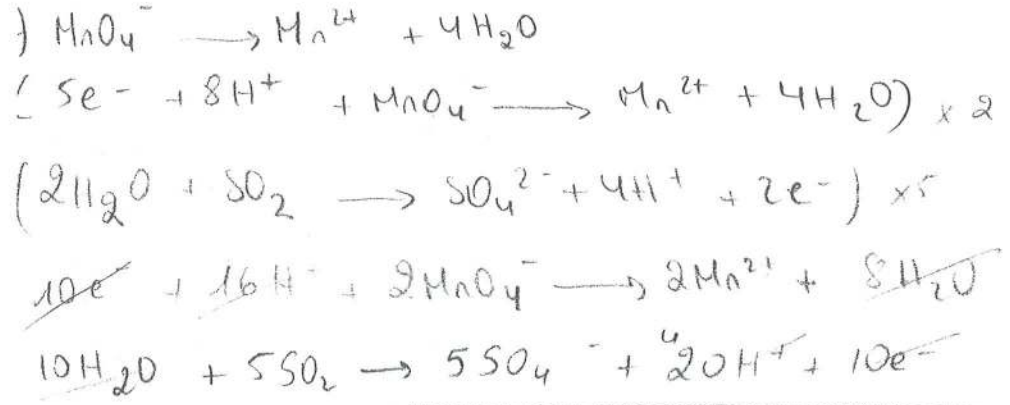 ) MnO₄⁻ → Mn²⁺ + 4H₂O
( 5e⁻ + 8H⁺ + MnO₄⁻ → Mn²⁺ + 4H₂O) × 2
(2H₂O + SO₂ → SO₄²⁻ + 4H⁺ + 2e⁻) × 5
10e⁻ + 16H⁻ + 2MnO₄⁻ → 2Mn²⁺ + 8H₂O
10H₂O + 5SO₂ → 5SO₄⁻ + ⁴20H⁺ + 10e⁻